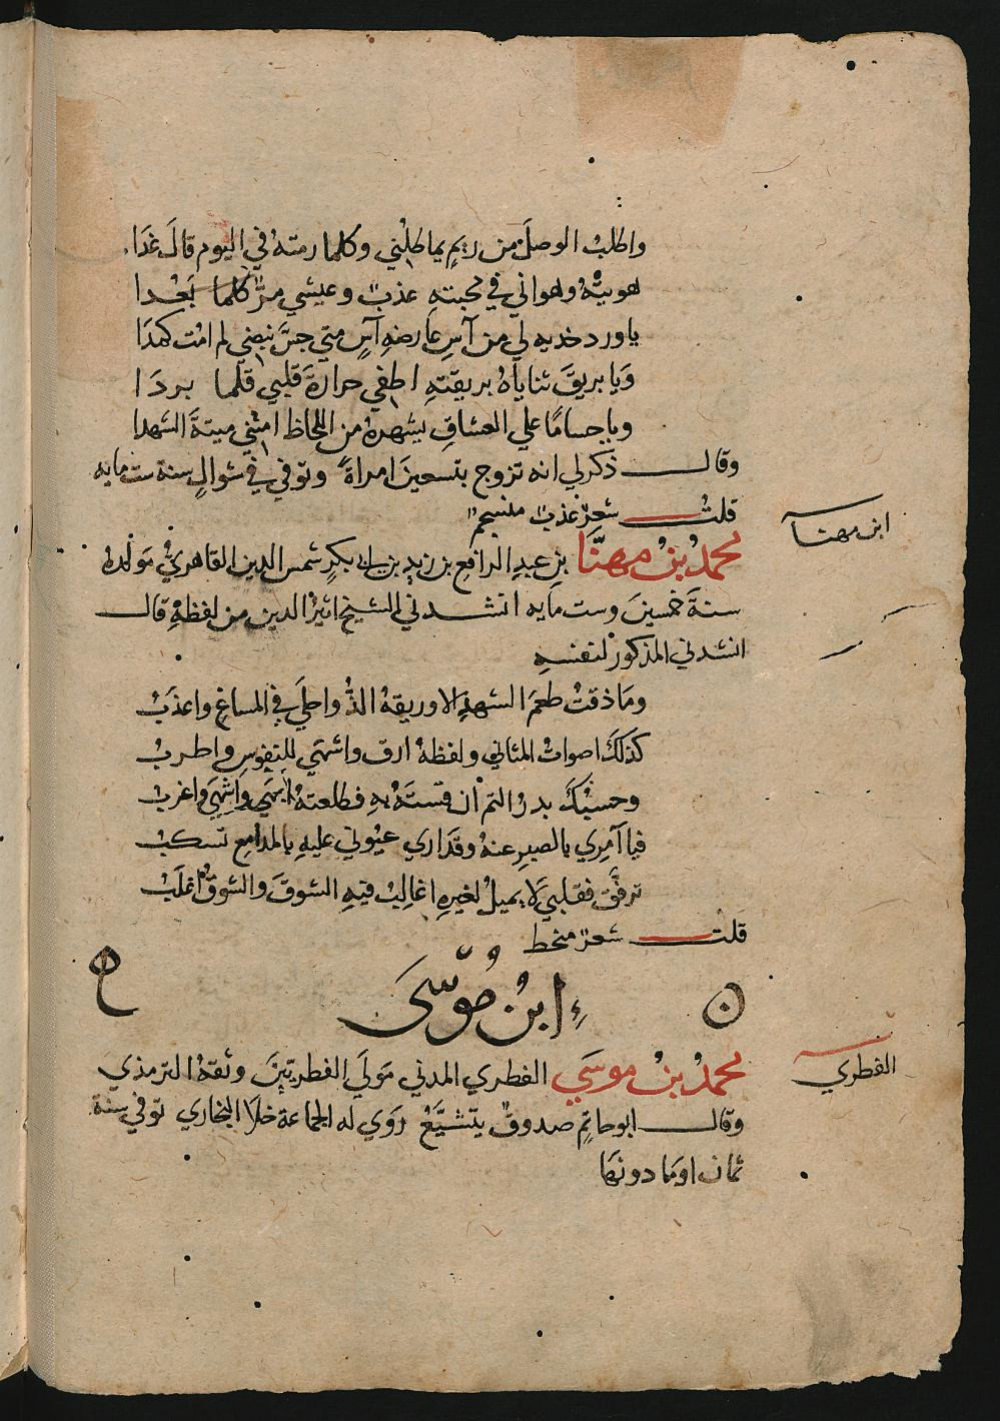 واطلبُ الوصلَ من ريمٍ يماطلُني وكلما رمتهُ في اليوم قالَ غدَا
هويتُهُ وهواني في محبتهِ عذبٌ وعيشي مرٌّ كلما بَعُدا
ياورد خديه لي من آسِ عارضهِ آسٍ متي جسَّ نبضي لم امُت كمدَا
وَيا بريقَ ثناياهُ بريقتهِ اطفي حرارةَ قلبي قلما بردَا
ويا حسامًا علي العشاقِ يشهرهُ من اللحاظ امتني ميتةَ الشهدا
وقال ذكر لي انه تزوج بتسعينَ امراةً وتوفي في شوالٍ سنة ست مايه
قلتُ شعرٌ عذبٌ منسجمٌ
ابن مهنا
محمدُ بنُ مهنَّا بنِ عبدِ الرافعِ بن زيد بن ابي بكرٍ شمس الدين القاهري مَولدهُ في
سنةَ خمسينَ وست مايه انشدني الشيخ اثيرُ الدين من لفظهِ قال
انشدني المذكورُ لنفسهِ
ومَا ذقتُ طعمَ الشهدِ الا وريقهُ الذُّ واحلَي في المساغِ واعذَبُ
كذلكَ اصواتُ المثاني ولفظهُ ارق واشهَي للنفوسِ واطربُ
وحسبُكَ بدرُ التم ان قستَهُ بهِ فطلعتهُ ابهَي واشهَي واغربُ
فيا آمرِي بالصبرِ عنهُ وقدَ اري عيوني عليهِ بالمدامِع تسكبُ
ترفَّق فقلبي لَا يميلُ لغيرهِ اغالِبُ فيهِ الشوقَ والشوقُ اغلَبُ
قلت شعرٌ منحط
ن ابنُ مُوسَى ح
الفطري
محمدُ بنُ موسَي الفطري المدني مَولَي الفطريّينَ وثقهُ الترمذي
وقال ابو حاتِم صدوقٌ يتشيَّعُ روَي له الجماعة خلَا البخاري توفي سنة
ثمان اومَا دونهَا